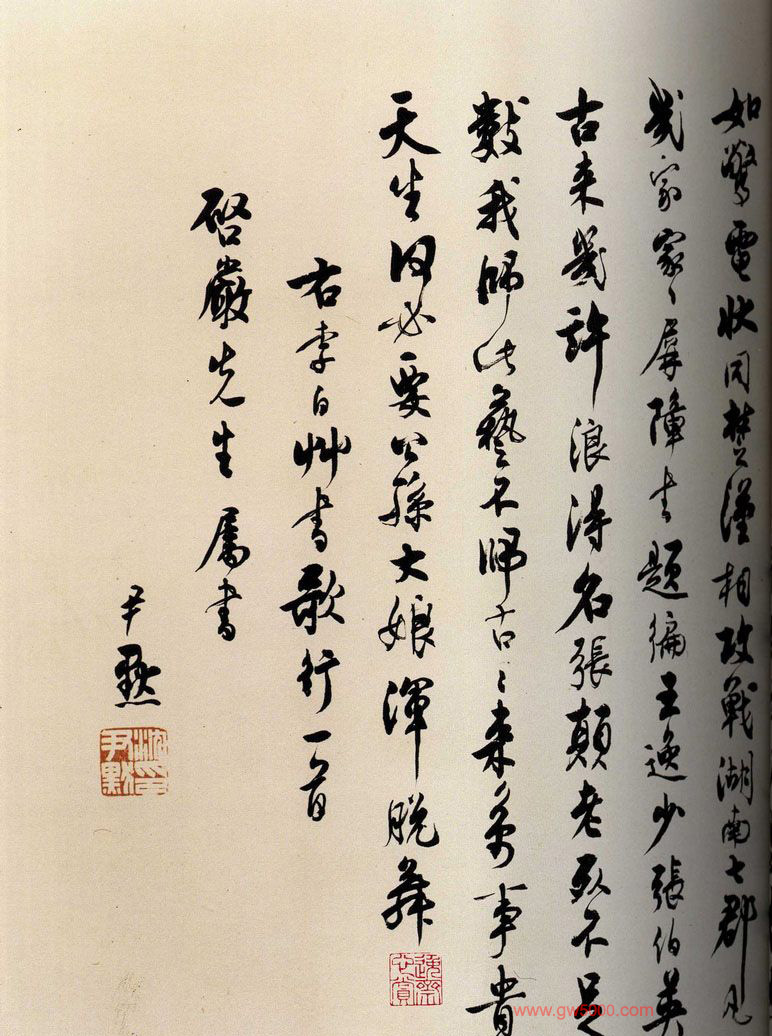 如驚電狀同楚漢相攻戰湖南七郡凡
幾家家〻屏障書題徧王逸少張伯英
古来幾許浪得名張顛老死不足
數我師此藝不師古〻来萬事貴
天生何必要公孫大娘渾脱舞
右李白艸書歌行一首
啓嚴先生属書
尹默
尹默
心賞